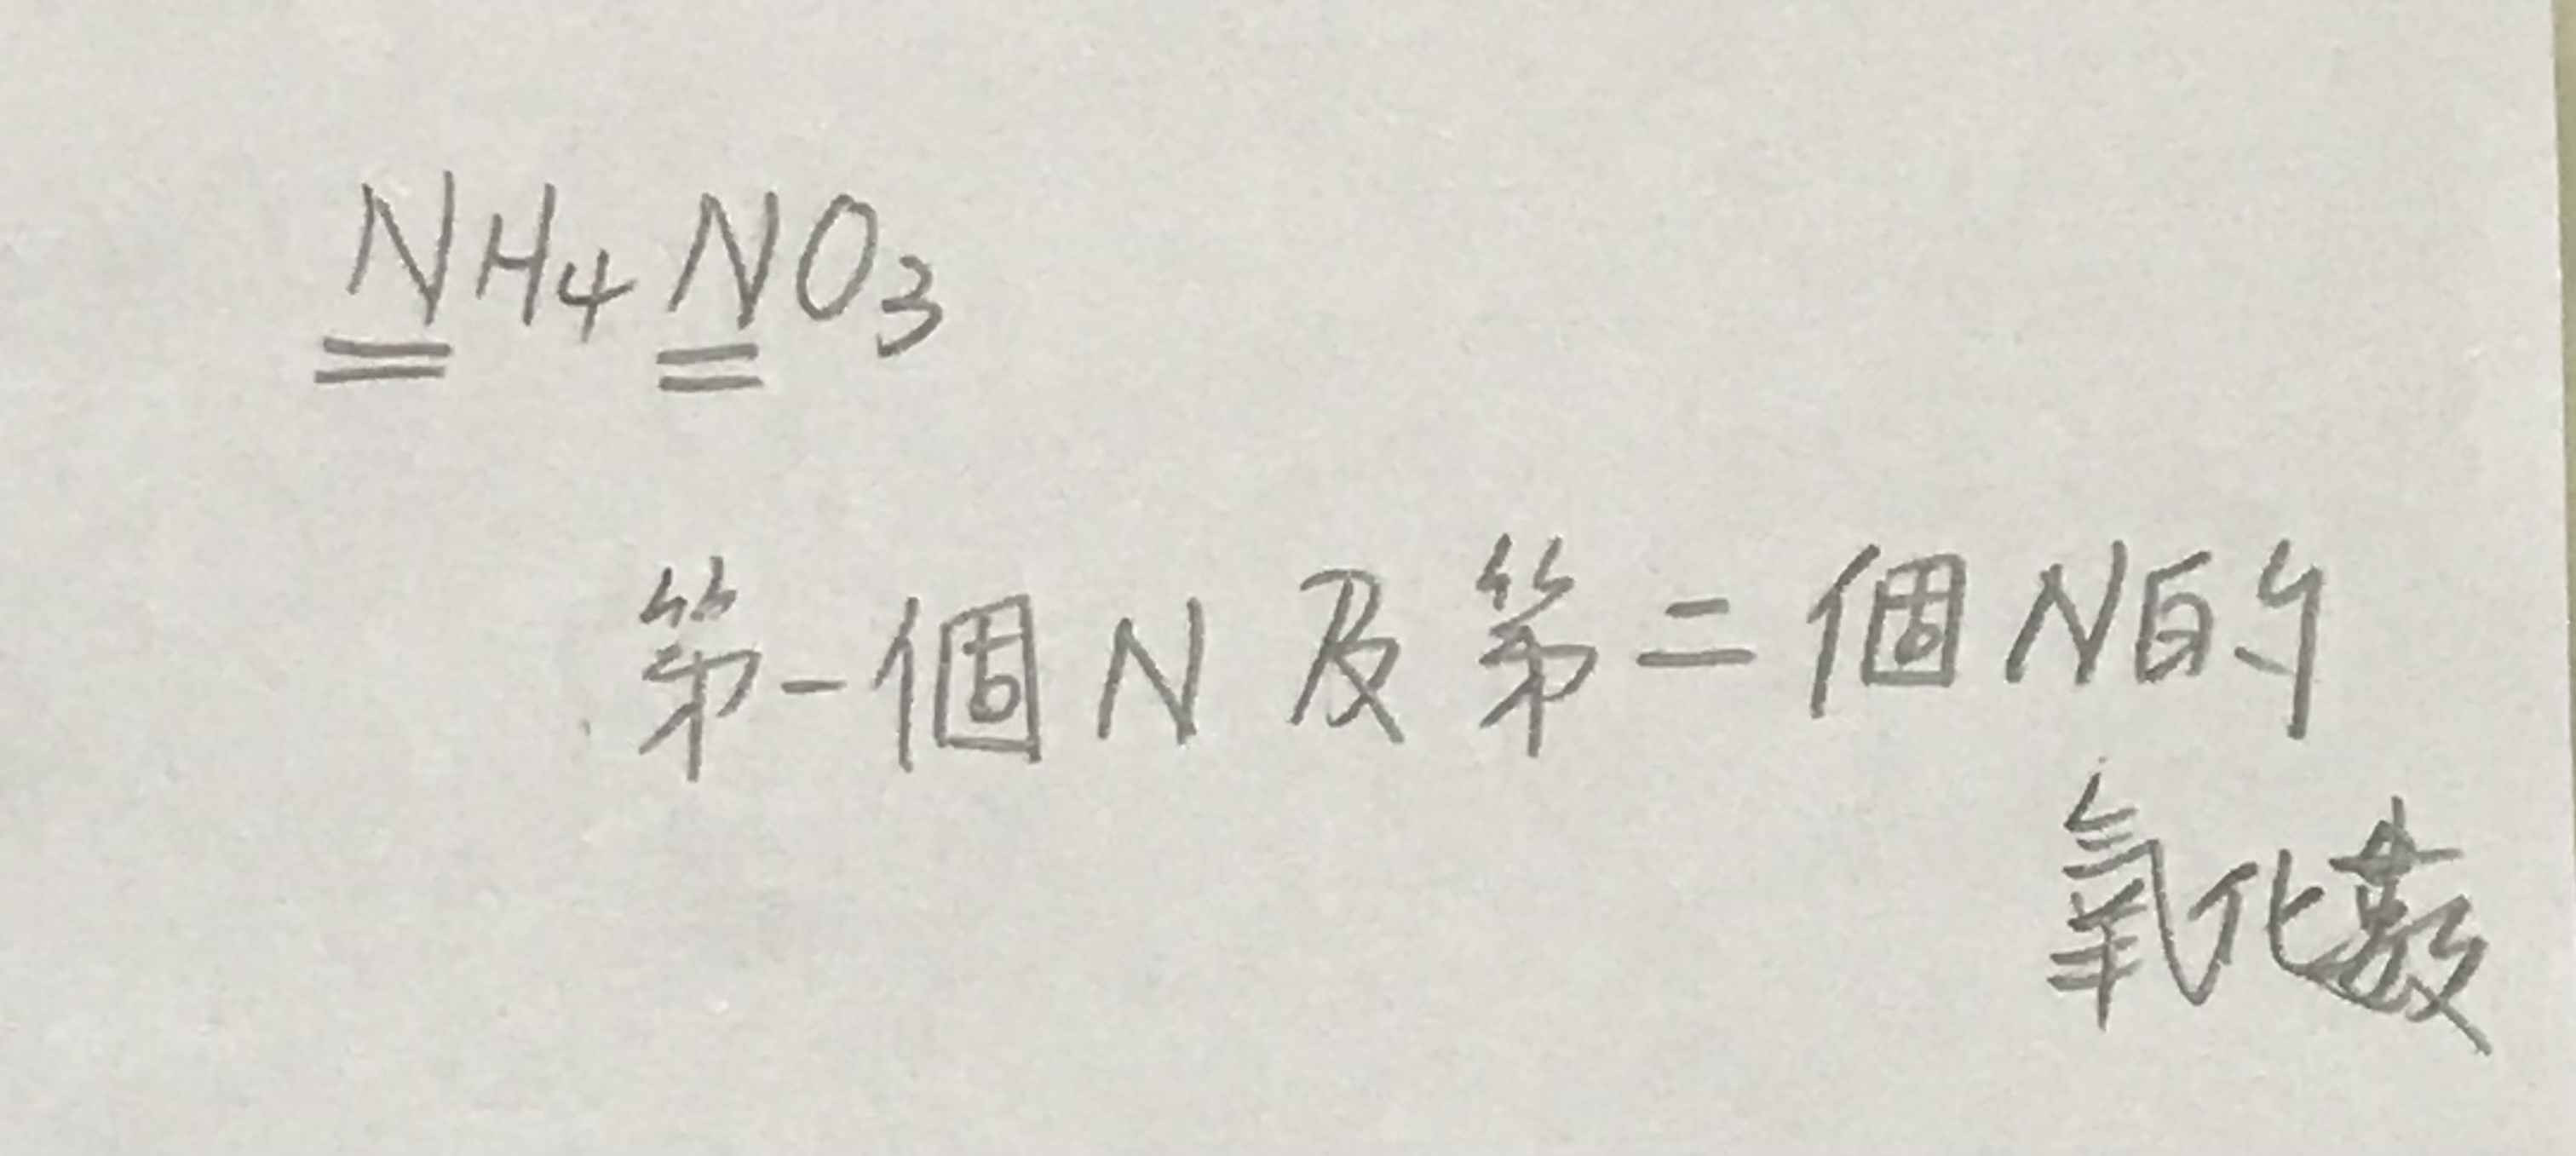 NH₄NO₃
第一個N及第二個N的
氧化數